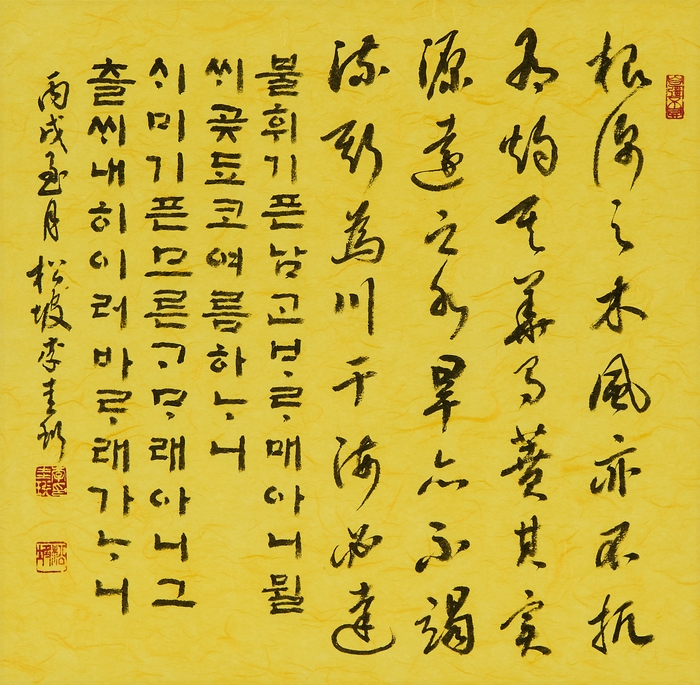 根深之木風亦不扤
有灼其華有蕡其實
源遠之水旱亦不竭
流斯為川于海必達
불휘기픈남ᄀᆞᆫᄇᆞᄅᆞ매아니뮐
ᄊᆡ곶됴코여름하ᄂᆞ니
ᄉᆡ미기픈므른ᄀᆞᄆᆞ래아니그
츨ᄊᆡ내히이러바ᄅᆞ래가ᄂᆞ니
丙戌至月松坡李圭